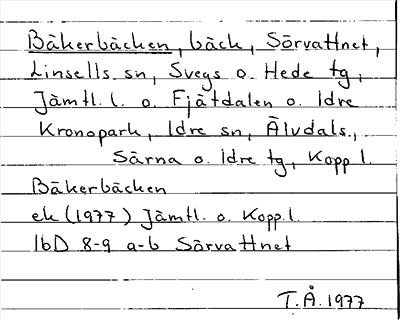 Bäkerbäcken, bäck, Sörvattnet,
Linsells sn, Svegs o. Hede tg,
Jämtl. l. o. Fjätdalen o. Idre
Kronopark, Idre sn, Älvdals.,
Särna o. Idre tg, Kopp l.
Bäkerbäcken
ek (1977) Jämtl. o. Kopp. l.
16D 8-9 a-b Sörvattnet
T.Å. 1977